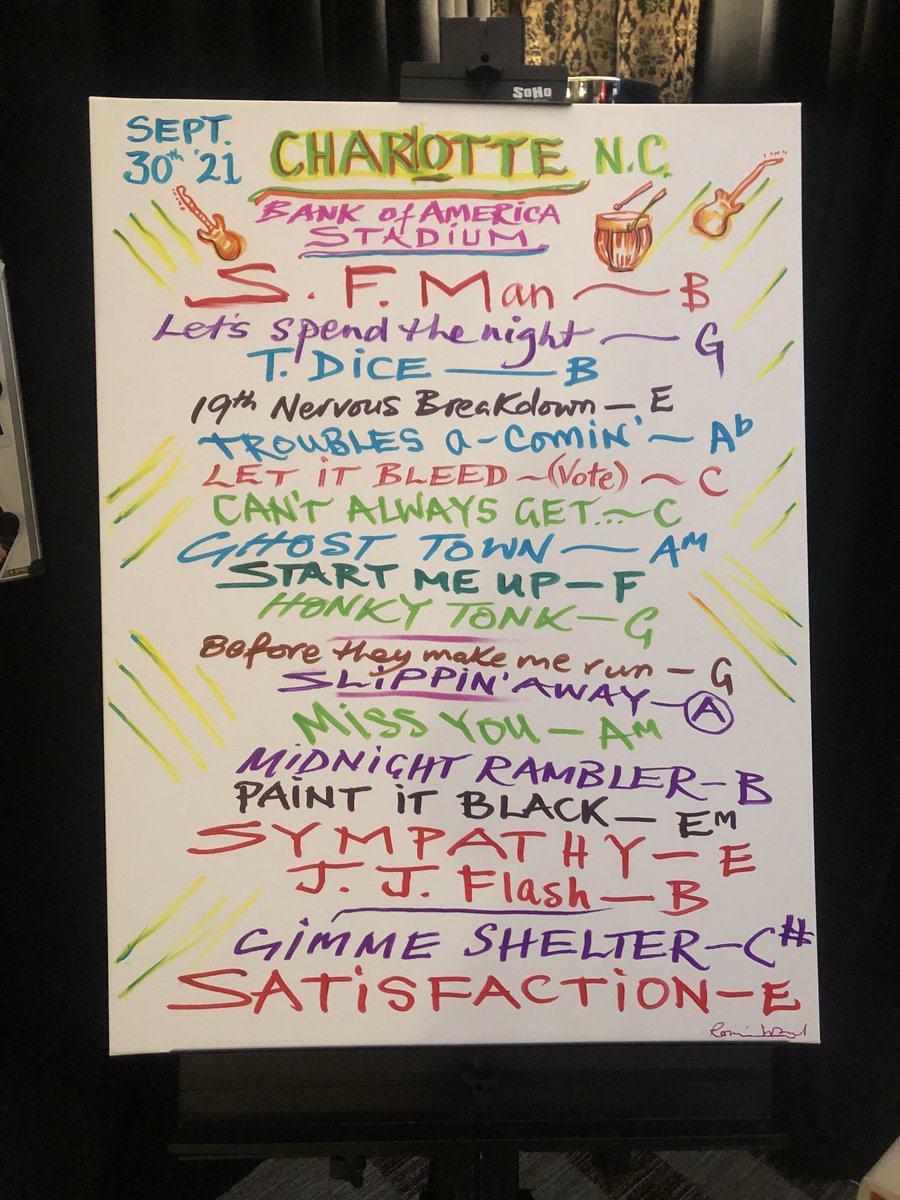 SoHo
SEPT.
30th '21
CHARLOTTE N.C.
BANK of AMERICA
STADIUM
S. F. Man ~ B
Let's spend the night ~ G
T. DiCE — B
19th Nervous Breakdown — E
TROUBLES a-COMiN' ~ Ab
LET iT BLEED ~ (Vote) ~ C
CAN'T ALWAYS GET...~ C
GHOST TOWN — Am
START ME UP — F
HONKY TONK — G
Before they make me run — G
SLiPPiN' AWAY — A
MiSS YOU — AM
MiDNiGHT RAMBLER — B
PAiNT iT BLACK — EM
SYMPATHY — E
J. J. Flash — B
GiMME SHELTER — C#
SATiSFACTiON — E